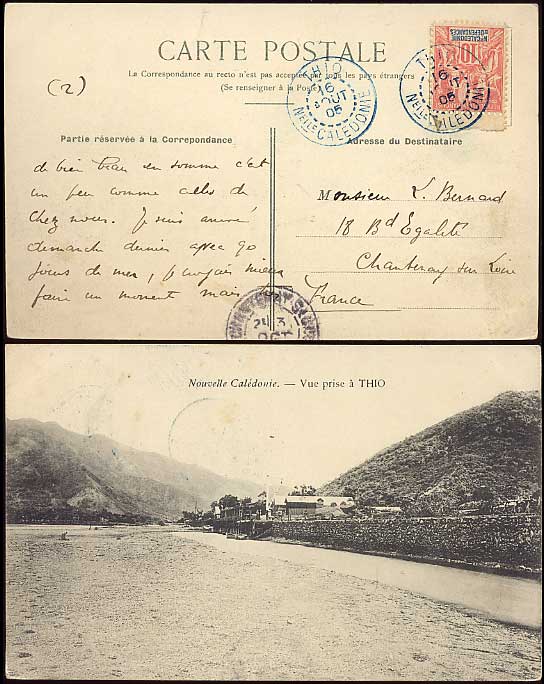 CARTE POSTALE
La Correspondance au recto n'est pas acceptée par tous les pays étrangers
(Se renseigner à la Poste)
(2)
THIO
16
AOUT
05
Nelle CALÉDONIE
THIO
16
AOUT
05
Nelle CALÉDONIE
Nlle CALÉDONIE
ET DÉPENDANCES
10
Partie réservée à la Correpondance
Adresse du Destinataire
de bien beau en somme c'est
un peu comme celles de
chez nous. Je suis arrivé
dimanche dernier après 90
jours de mer,
faire un moment mais
Monsieur L. Bernard
18 Bd Egalité
Chantenay sur Loire
France
Nouvelle Calédonie. — Vue prise à THIO